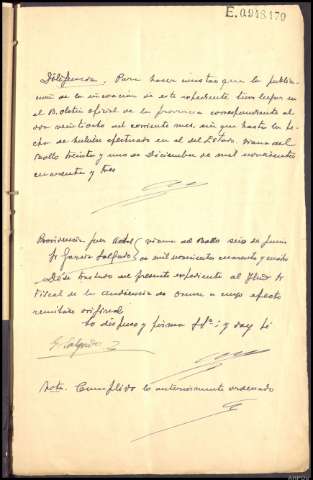 E.0.946.170
Diligencia, Para hacer constar que la publica-
ción de la incoación de este expediente tuvo lugar en
el Boletín oficial de la provincia correspondiente al
dia veintiocho del corriente mes, sin que hasta la fe-
cha se hubiese efectuado en el del Estado. Viana del
Bollo treinta y uno de Diciembre de mil novecientos
cuarenta y tres
Providencia Juez Actal. (Viana del Bollo seis de Junio
Sr Garcia Salgado) de mil novecientos cuarenta y cuatro
Dése traslado del presente expediente al Iltmo Sr
Fiscal de la audiencia de Orense a cuyo efecto
remitase original.
Lo dispuso y firma Sª; y doy fé
G Salgado
Nota. Cumplido lo anteriormente ordenado